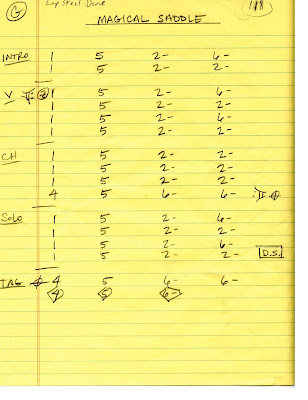 G Lap Steel Done 118
MAGICAL SADDLE
INTRO 1 5 2- 6-
1 5 2- 2-
V 1 5 2- 6-
1 5 2- 2-
1 5 2- 6-
1 5 2- 2-
CH 1 5 2- 2-
1 5 2- 2-
1 5 2- 2-
4 5 6- 6-
SOLO 1 5 2- 6-
1 5 2- 2-
1 5 2- 6-
1 5 2- 2- D.S.
TAG 4 5 6- 6-
4 5 6-